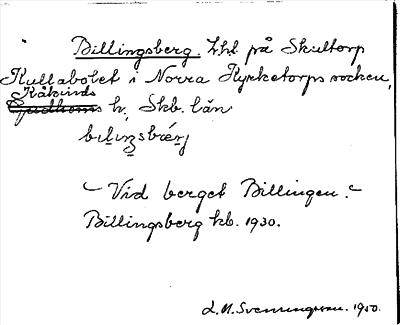 Billingsberg. Lht på Skultorp
Kullabolet i Norra Kyrketorps socken,
Kåkinds
Gudhems h. Skb. län
bɩlɩŋsbærj
– Vid berget Billingen. –
Billingsberg kb. 1930.
L. M. Svenningsson. 1950.